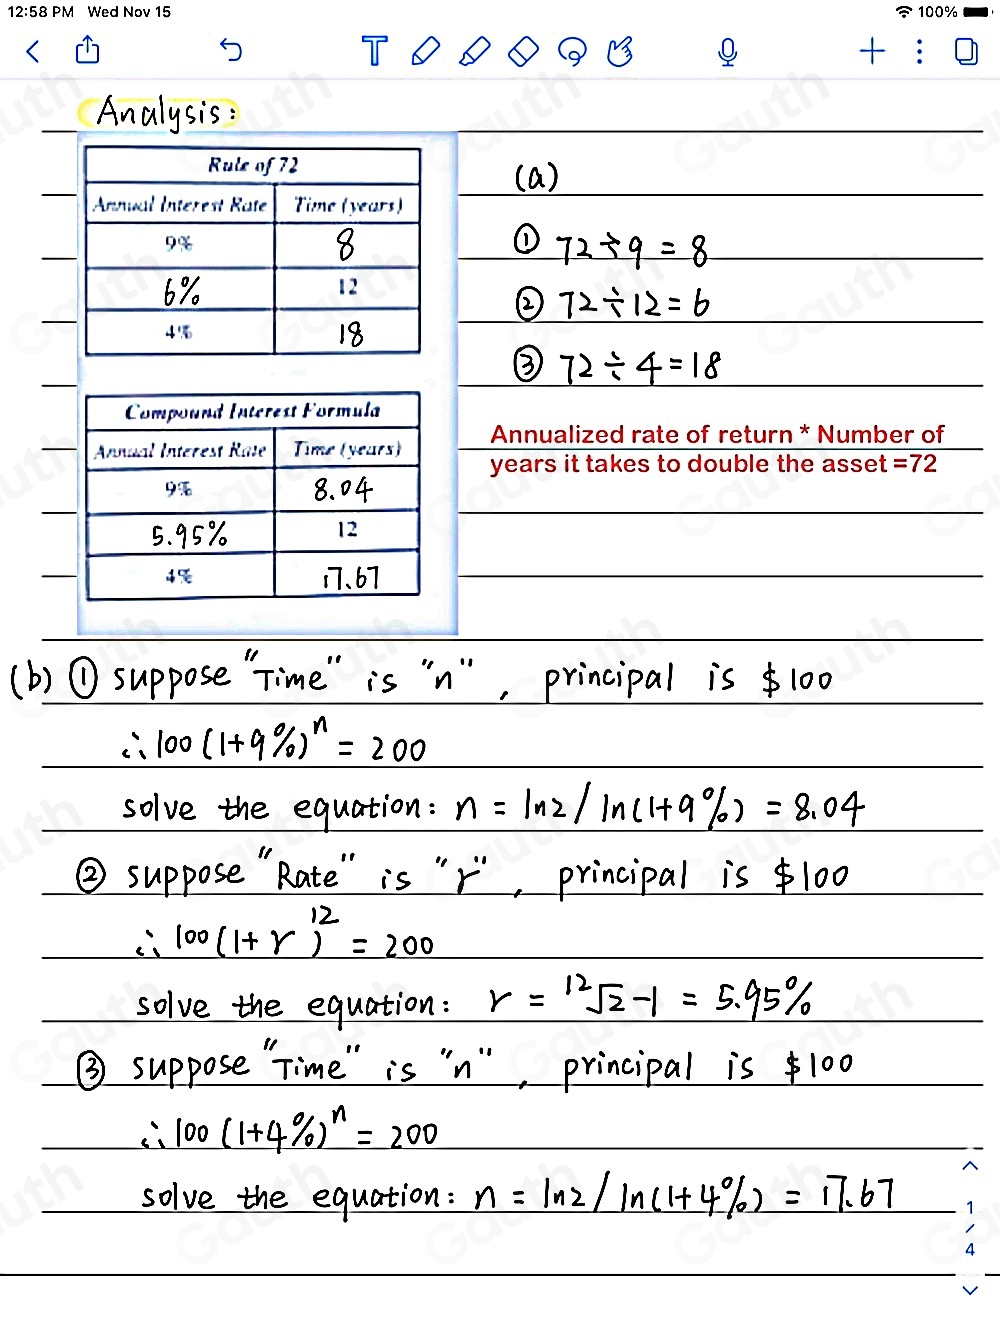 12:58 PM Wed Nov 15
100%
T
Analysis:
Rule of 72
Annual Interest Rate Time (years)
9% 8
6% 12
4% 18
(a)
① 72÷9 = 8
② 72÷12 = 6
③ 72÷4 = 18
Annualized rate of return * Number of
years it takes to double the asset =72
Compound Interest Formula
Annual Interest Rate Time (years)
9% 8.04
5.95% 12
4% 17.67
(b) ① suppose "Time" is "n", principal is $100
∴ 100(1+9%)^n = 200
solve the equation: n = ln2/ln(1+9%) = 8.04
② suppose "Rate" is "r", principal is $100
∴ 100(1+r)^12 = 200
solve the equation: r = ¹²√2-1 = 5.95%
③ suppose "Time" is "n", principal is $100
∴ 100(1+4%)^n = 200
solve the equation: n = ln2/ln(1+4%) = 17.67
1
/
4
Gauth